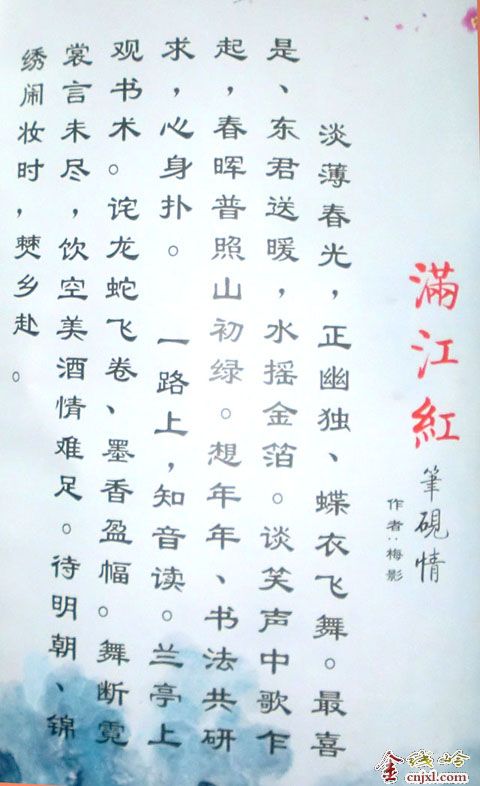 滿江紅
筆硯情
作者：梅影
淡薄春光，正幽独、蝶衣飞舞。最喜
是、东君送暖，水摇金箔。谈笑声中歌乍
起，春晖普照山初绿。想年年、书法共研
求，心身扑。 一路上，知音读。兰亭上
观书术。诧龙蛇飞卷、墨香盈幅。舞断霓
裳言未尽，饮空美酒情难足。待明朝、锦
绣闹妆时，僰乡赴。
cnjxl.com